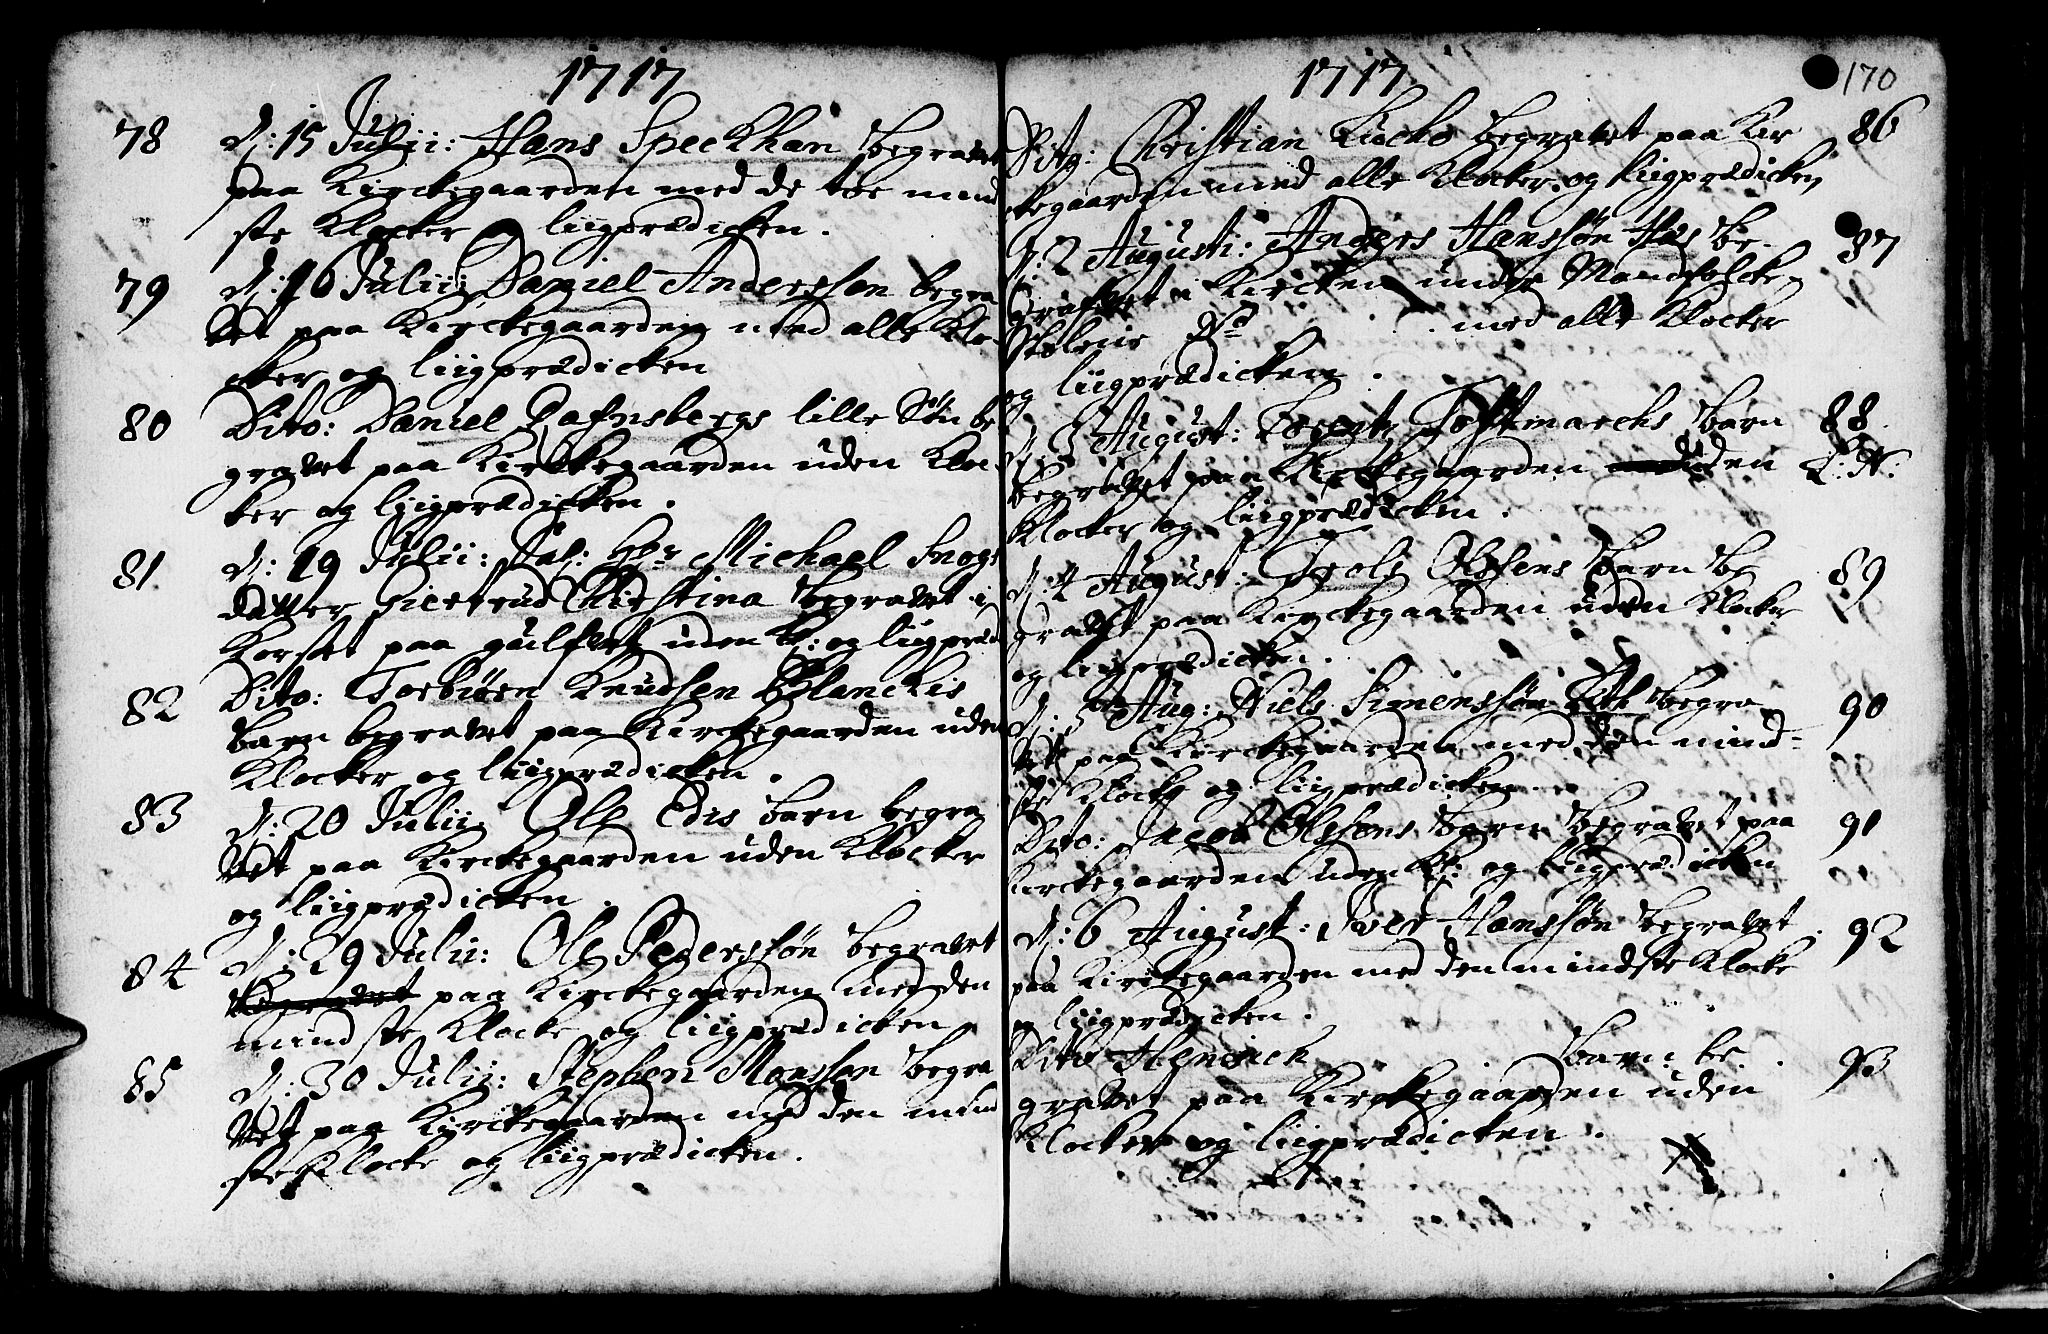 1717
78 d: 15 Julii: Hans Speckhan begravet
paa Kirckegaarden med de toe mind
ste Klocker liigprædicken.
79 d: 16 Julii: Daniel Anderssøn begra
vet paa Kirckegaarden med alle Klo-
cker og liigprædicken
80 Dito: Daniel Dafnsbergs lille Søn be
gravet paa Kirckegaarden uden Kloc-
ker og liigprædicken.
81 d: 19 Julii: Sal: Hr Michael Snogs
datter Giertrud Kirstina begravet i
Korset paa gulfvet uden Kl: og liigpræd
82 Dito: Torbiørn Knudsen Blanckis
barn begravet paa Kirckegaarden uden
Klocker og liigprædicken.
83 d: 20 Julii: Ole Edis barn begra
vet paa Kirckegaarden uden Klocker
og liigprædicken.
84 d: 29 Julii: Ole Pederssøn begravet
begravet paa Kirckegaarden med den
mindste Klocke og liigprædicken
85 d: 30 Julii: Stephen Monssøn begra
vet paa Kirckegaarden med den mind
ste Klocke og liigprædicken.
1717
170
Dito: Christian begravet paa Kir 86
ckegaarden med alle Klocker og liigprædicken
d: 2 Augusti: Anders Hanssøn Hus be- 87
grafvet i Kircken under Mandfolcke
Stolene No med alle Klocker
og liigprædicken.
d: 3 August: Lorentz Toftmarcks barn 88
begravet paa Kirckegaarden uden L: N:
Klocker og liigprædicken.
d: 4 August: Trols Olssens barn be 89
gravet paa Kirckegaarden uden Klocker
og liigprædicken.
d: 5 Aug: Niels Simenssøn begra 90
vet paa Kirckegaarden med den mind-
ste Klocke og liigprædicken
Dito: Jacob Olssøns barn begravet paa 91
Kirckegaarden uden Kl: og liigprædicken
d: 6 August: Iver Hanssøn begravet 92
paa Kirckegaarden med den mindste Klocke
og liigprædicken.
Dito Henrich barn be 93
gravet paa Kirckegaarden uden
Klocker og liigprædicken.